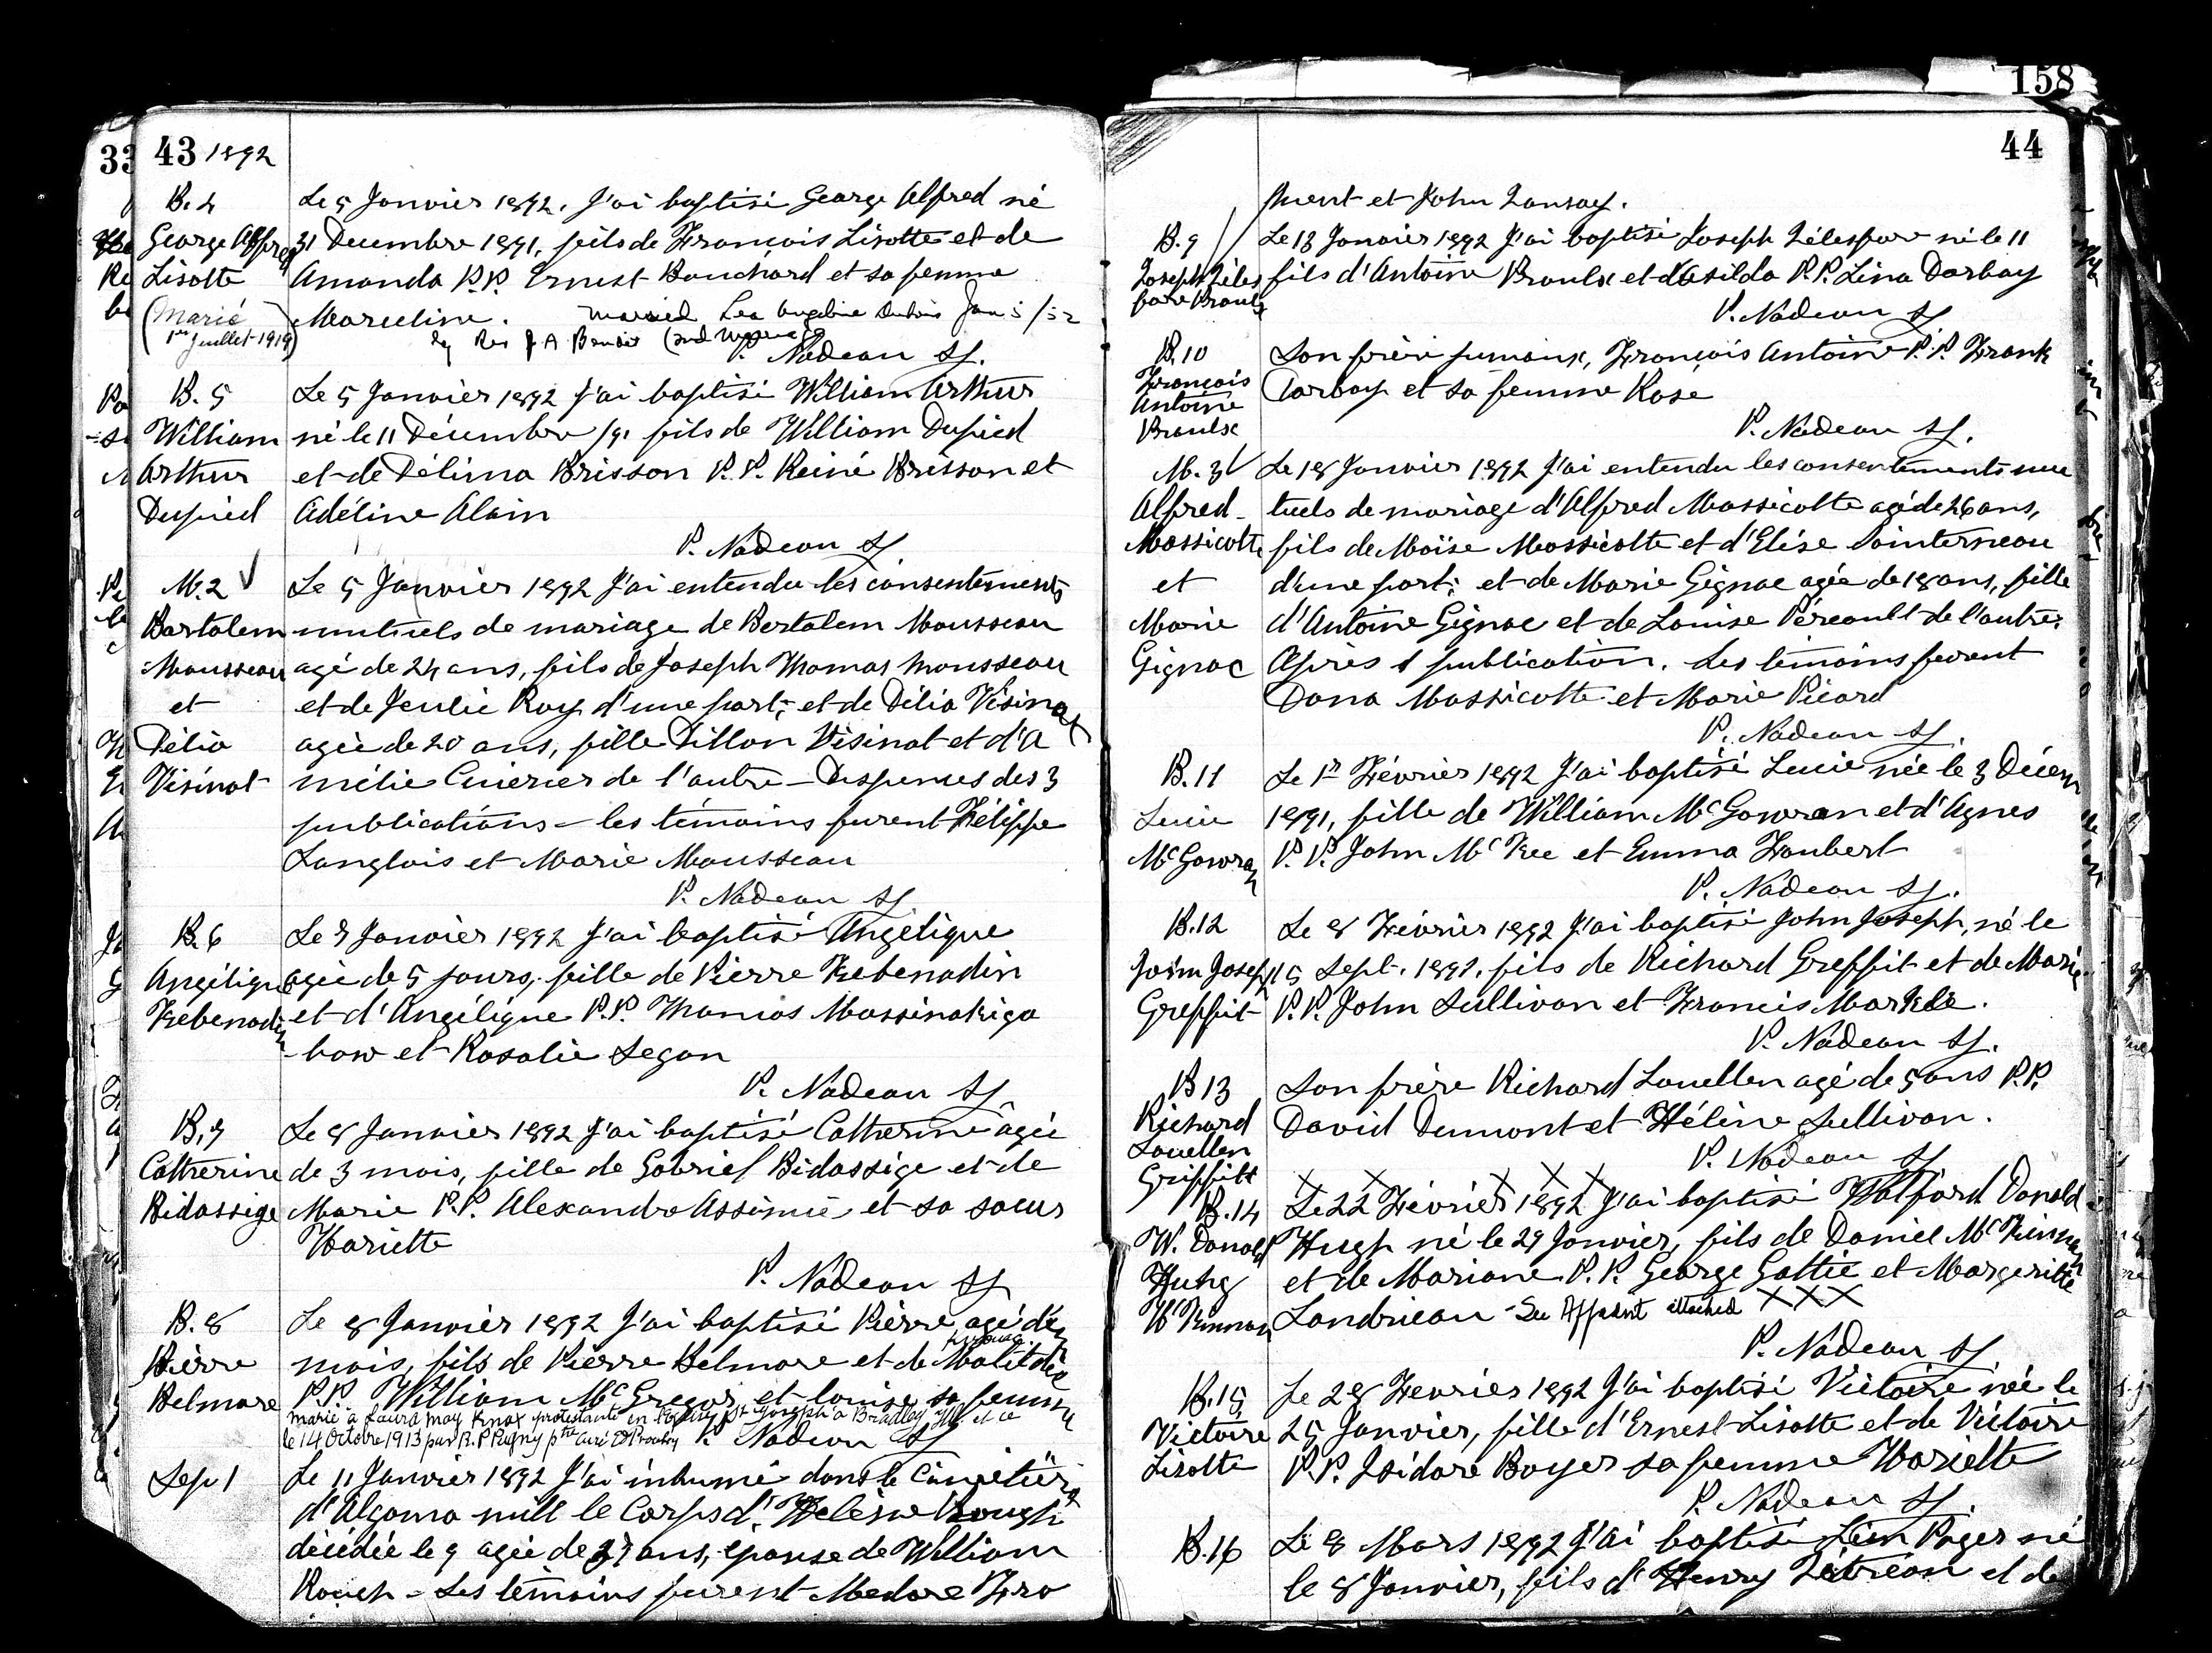 158
33
43 1892
B. 4
George Alfred
Lisotte
(Marié
1er Juillet 1919)
Le 5 Janvier 1892. J'ai baptisé George Alfred né
31 Decembre 1891, fils de François Lisotte et de
Amanda P.P. Ernest Bouchard et sa femme
Marceline. married Lea Angeline Dubois Jan 5/52
by Rev J A
P. Nadeau SJ.
B. 5
William
Arthur
Dupied
Le 5 Janvier 1892 J'ai baptisé William Arthur
né le 11 Décembre /91 fils de William Dupied
et de Délima Brisson P.P. Reiné Brisson et
Adéline Alain
P. Nadeau SJ
M. 2 √
Bartolem
Mousseau
et
Délia
Visinat
Le 5 Janvier 1892 J'ai entendu les consentements
mutuels de mariage de Bertolem Mousseau
agé de 24 ans, fils de Joseph Thomas Mousseau
et de Jeulie Roy d'une part; et de Délia Visinat
agée de 20 ans, fille Dillon Visinat et d'A
mélie Cuierier de l'autre - Dispenses des 3
publications - les témoins furent Félippe
Langlois et Marie Mousseau
P. Nadeau SJ
B. 6
Angélique
Kebenadin
Le 7 Janvier 1892 J'ai baptisé Angélique
agée de 5 jours, fille de Pierre Kebenadin
et d'Angélique P.P. Thomas Massinakiga
-bow et Rosalie Segon
P. Nadeau SJ
B. 7
Catherine
Bidassige
Le 8 Janvier 1892 J'ai baptisé Catherine agée
de 3 mois, fille de Gabriel Bidassige et de
Marie P.P. Alexandre Assinie et sa soeur
Hariette
P. Nadeau SJ
B. 8
Pierre
Belmare
Le 8 Janvier 1892 J'ai baptisé Pierre agé de
mois, fils de Pierre Belmare et de Matilde
P.P. William McGregor et Louise sa femme
marié à Laura May Knox protestante en l'église St Joseph à Bradley Ill. et ce
le 14 Octobre 1913 par R.P. ptre Curé
P. Nadeau SJ
Sep 1
Le 11 Janvier 1892 J'ai inhumé dans le Cimetière
d'Algoma mill le Corps d'Helène Rough
décédée le 9 agée de 37 ans, epouse de William
Rough - Les témoins furent Medore Fro
44
ment et John Lansay.
B. 9
Joseph Téles
fore Proulx
Le 13 Janvier 1892 J'ai baptisé Joseph Télesfore né le 11
fils d'Antoine Proulx et d'Asilda P.P. Lina Darbay
P. Nadeau SJ
B. 10
François
Antoine
Proulx
Son frère jumeaux, François Antoine P.P. Frank
Darbay et sa femme Rose
P. Nadeau SJ.
M. 3 √
Alfred
Massicotte
et
Marie
Gignac
Le 18 Janvier 1892 J'ai entendu les consentements mu
tuels de mariage d'Alfred Massicotte agé de 26 ans,
fils de Moïse Massicotte et d'Elise Sainterneau
d'une part; et de Marie Gignac agée de 18 ans, fille
d'Antoine Gignac et de Louise Péreault de l'autre.
Après 1 publication. Les témoins furent
Dona Massicotte et Marie Picard
P. Nadeau SJ.
B. 11
Lucie
McGowran
Le 1r Février 1892 J'ai baptisé Lucie née le 3 Décem
1891, fille de William McGowran et d'Agnes
P.P. John McKee et Emma Joubert
P. Nadeau SJ.
B. 12
John Joseph
Greffit
Le 8 Février 1892 J'ai baptisé John Joseph, né le
15 Sept. 1891. fils de Richard Greffit et de Marie
P.P. John Sullivan et Francis Markée.
P. Nadeau SJ.
B 13
Richard
Louellen
Griffitt
Son frère Richard Louellen agé de 5 ans P.P.
David Dumont et Hélène Sullivan.
P. Nadeau SJ
B. 14
W. Donald
Huhg
McKinnon
Le 22 Février 1892 J'ai baptisé Walford Donald
Hugh né le 29 Janvier, fils de Daniel McKinnon
et de Mariane P.P. George Gattie et Margeritte
Landrieau - See Affidavit attached XXX
P. Nadeau SJ
B. 15
Victoire
Lisotte
Le 28 Fevrier 1892 J'ai baptisé Victoire née le
25 Janvier, fille d'Ernest Lisotte et de Victoire
P.P. Isidore Boyer sa femme Hariette
P. Nadeau SJ.
B. 16
Le 8 Mars 1892 J'ai baptisé Léon Roger né
le 8 Janvier, fils d'Henry Létréau et de